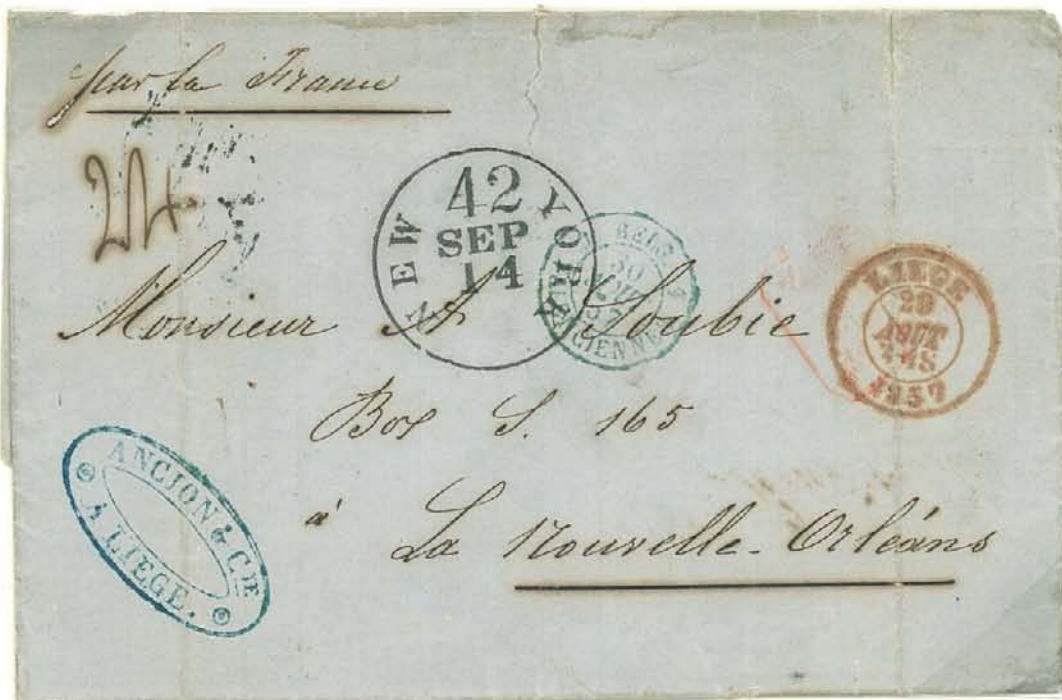 par la France
24
NEW YORK
42
SEP
14
BELG.
30
LIEGE
28
AOUT
4-4S
1857
Monsieur A Soubie
Box S. 165
à La Nouvelle-Orléans
ANCION & CIE
A LIEGE.